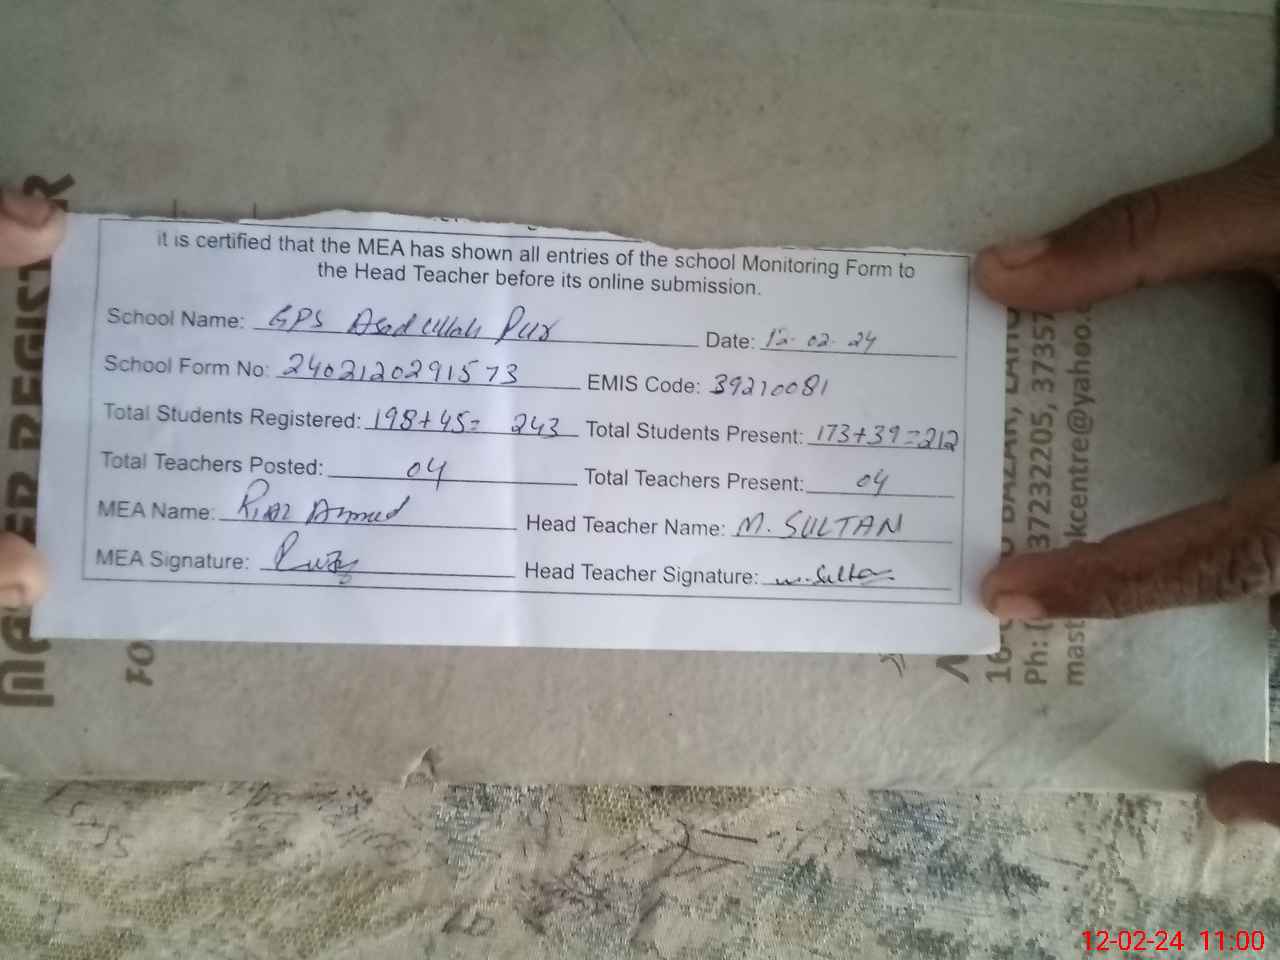 it is certified that the MEA has shown all entries of the school Monitoring Form to
the Head Teacher before its online submission.
School Name: GPS Asad ullah Pur Date: 12-02-24
School Form No: 2402120291573 EMIS Code: 39210081
Total Students Registered: 198+45= 243 Total Students Present: 173+39=212
Total Teachers Posted: 04 Total Teachers Present: 04
MEA Name: Riaz Ahmed Head Teacher Name: M. SULTAN
MEA Signature: Head Teacher Signature: M. Sultan
MASTER REGISTER
BAZAR,
37232205, 37357
@yahoo.
12-02-24 11:00